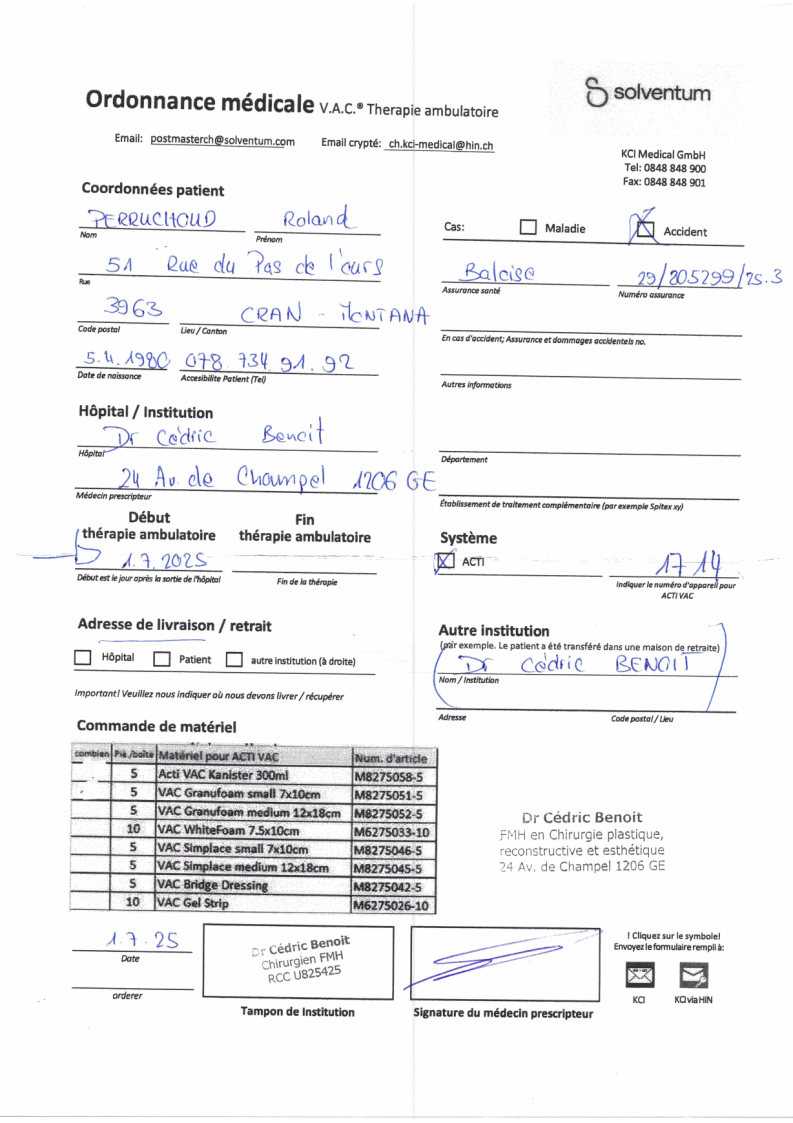 solventum
Ordonnance médicale V.A.C.® Therapie ambulatoire
Email: postmasterch@solventum.com Email crypté: ch.kci-medical@hin.ch
KCI Medical GmbH
Tel: 0848 848 900
Fax: 0848 848 901
Coordonnées patient
PERRUCHOUD Roland
Nom Prénom
Cas: Maladie Accident
51 Rue du Pas de l'ours
Rue
Baloise 29/805299/25.3
Assurance santé Numéro assurance
3963 CRAN - MONTANA
Code postal Lieu / Canton
En cas d'accident; Assurance et dommages accidentels no.
5.4.1980 078.734.91.92
Date de naissance Accesibilite Patient (Tel)
Autres informations
Hôpital / Institution
Dr Cédric Benoit
Hôpital
Département
24 Av. de Champel 1206 GE
Médecin prescripteur
Établissement de traitement complémentaire (par exemple Spitex xy)
Début
thérapie ambulatoire
Fin
thérapie ambulatoire
1.7.2025
Début est le jour après la sortie de l'hôpital Fin de la thérapie
Système
ACTI 1714
Indiquer le numéro d'appareil pour
ACTI VAC
Adresse de livraison / retrait
Hôpital Patient autre institution (à droite)
Important! Veuillez nous indiquer où nous devons livrer / récupérer
Autre institution
(par exemple. Le patient a été transféré dans une maison de retraite)
Dr Cédric BENOIT
Nom / Institution
Adresse Code postal / Lieu
Commande de matériel
combien Pie./boîte Matériel pour ACTI VAC Num. d'article
5 Acti VAC Kanister 300ml M8275058-5
5 VAC Granufoam small 7x10cm M8275051-5
5 VAC Granufoam medium 12x18cm M8275052-5
10 VAC WhiteFoam 7.5x10cm M6275033-10
5 VAC Simplace small 7x10cm M8275046-5
5 VAC Simplace medium 12x18cm M8275045-5
5 VAC Bridge Dressing M8275042-5
10 VAC Gel Strip M6275026-10
Dr Cédric Benoit
FMH en Chirurgie plastique,
reconstructive et esthétique
24 Av. de Champel 1206 GE
1.7.25
Date
orderer
Dr Cédric Benoit
Chirurgien FMH
RCC U825425
Tampon de Institution
Signature du médecin prescripteur
! Cliquez sur le symbole!
Envoyez le formulaire rempli à:
KCI KCI via HIN